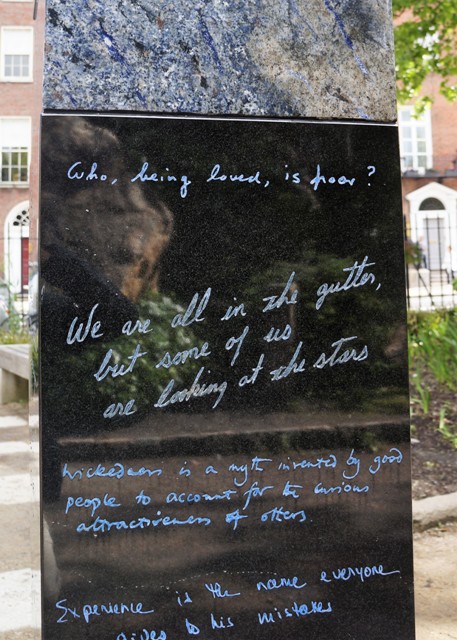 Who, being loved, is poor?
We are all in the gutter,
but some of us
are looking at the stars
Wickedness is a myth invented by good
people to account for the curious
attractiveness of others.
Experience is the name everyone
gives to his mistakes